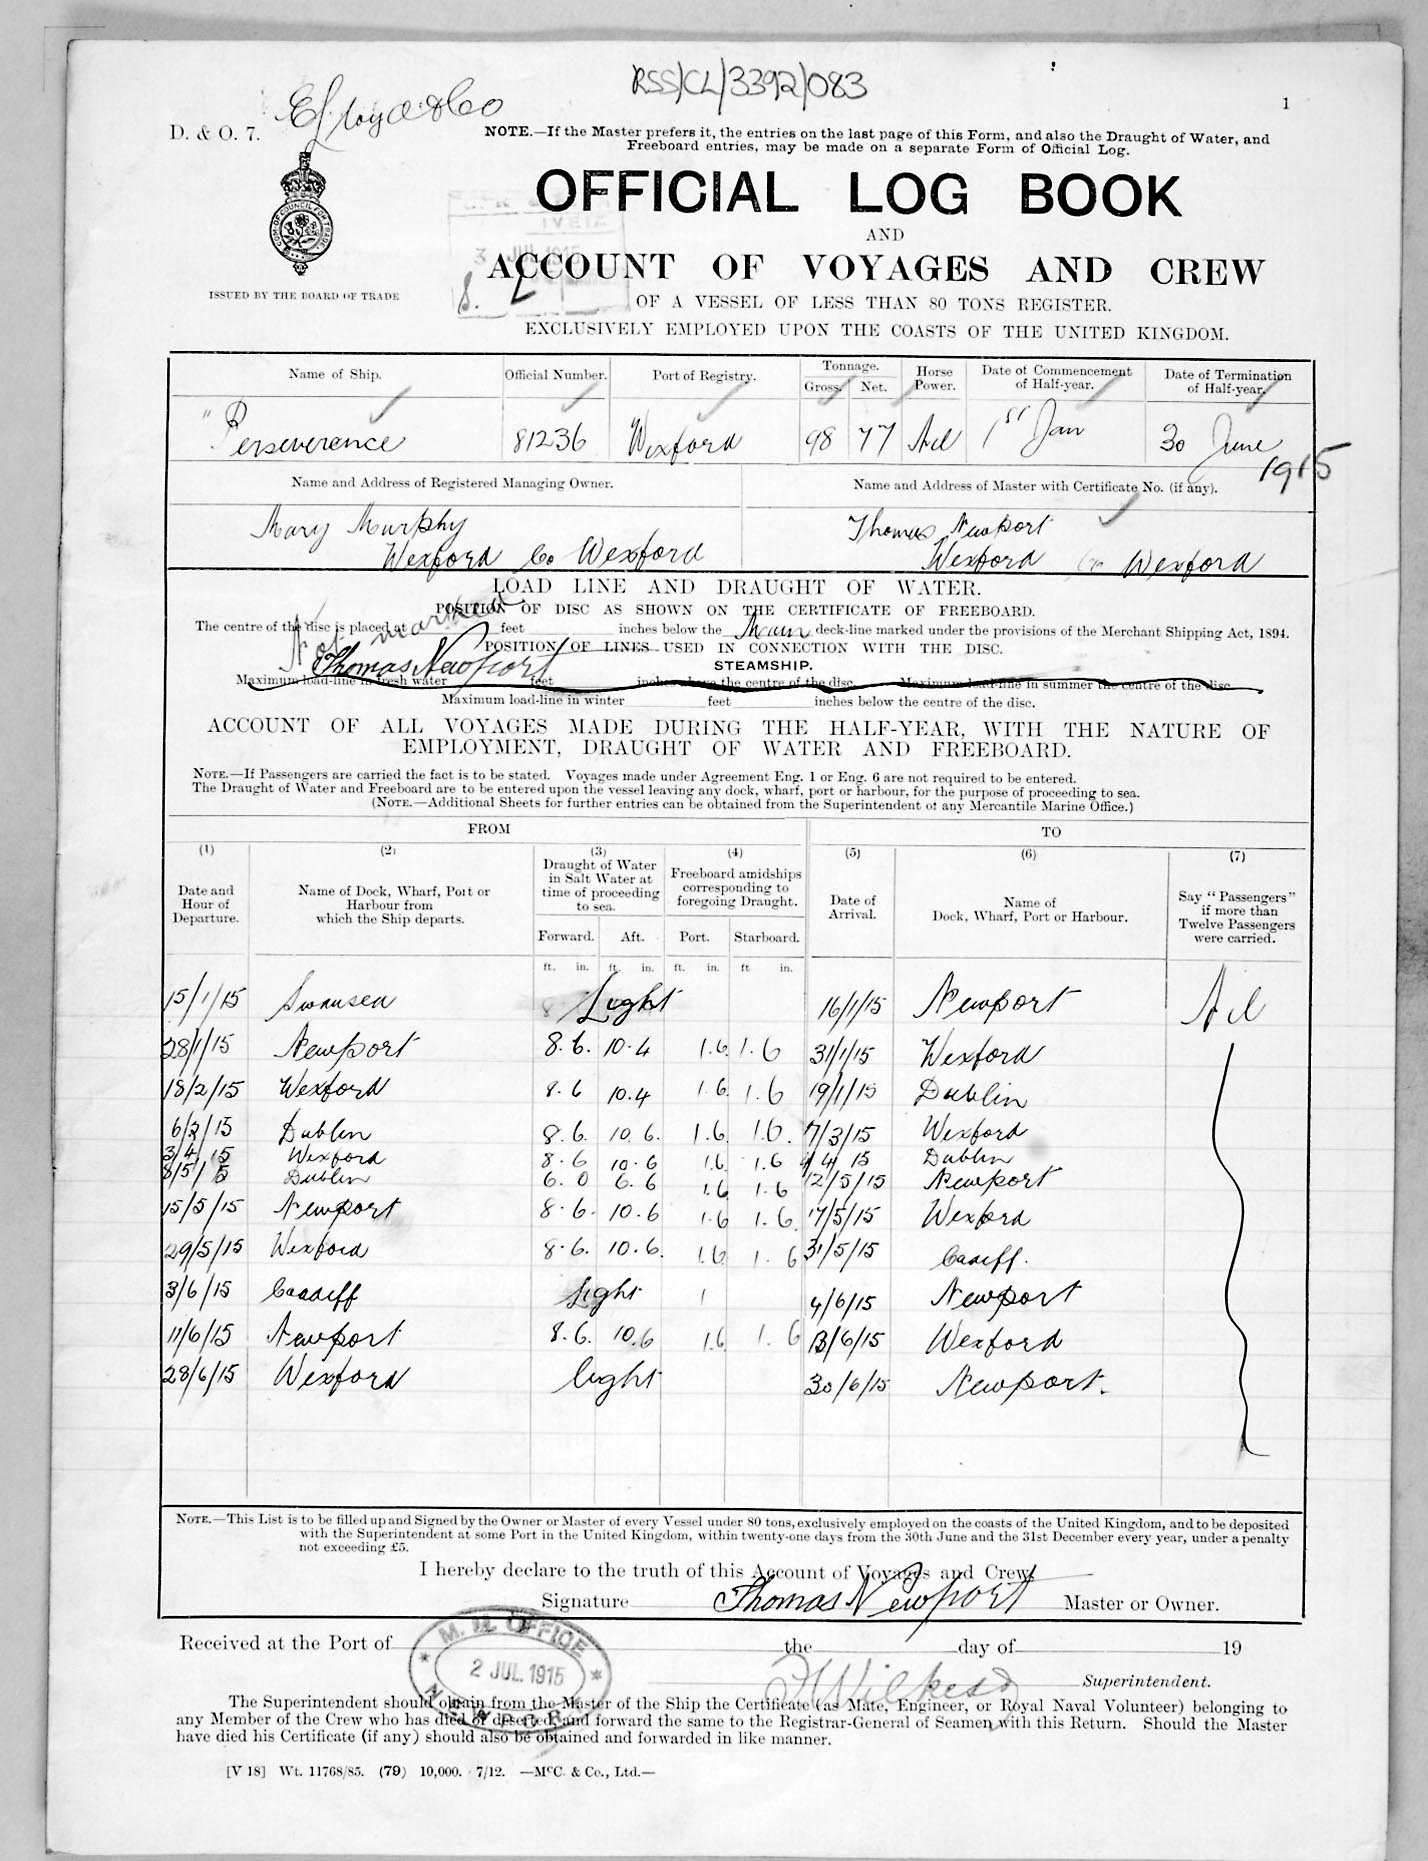 RSS/CL/3392/083
1
D. & O. 7.
NOTE.—If the Master prefers it, the entries on the last page of this Form, and also the Draught of Water, and
Freeboard entries, may be made on a separate Form of Official Log.
OFFICIAL LOG BOOK
AND
3 JUL 1915
ACCOUNT OF VOYAGES AND CREW
ISSUED BY THE BOARD OF TRADE
OF A VESSEL OF LESS THAN 80 TONS REGISTER.
EXCLUSIVELY EMPLOYED UPON THE COASTS OF THE UNITED KINGDOM.
Name of Ship. Official Number. Port of Registry. Tonnage. Gross. Net. Horse Power. Date of Commencement of Half-year. Date of Termination of Half-year.
"Perseverence 81236 Wexford 98 77 Nil 1st Jan 30 June
1915
Name and Address of Registered Managing Owner. Name and Address of Master with Certificate No. (if any).
Mary Murphy Thomas Newport
Wexford Co Wexford Wexford Co Wexford
LOAD LINE AND DRAUGHT OF WATER.
POSITION OF DISC AS SHOWN ON THE CERTIFICATE OF FREEBOARD.
Not marked
The centre of the disc is placed at feet inches below the Main deck-line marked under the provisions of the Merchant Shipping Act, 1894.
POSITION OF LINES USED IN CONNECTION WITH THE DISC.
Thomas Newport
STEAMSHIP.
Maximum load-line in fresh water feet inches above the centre of the disc. Maximum load-line in summer the centre of the disc.
Maximum load-line in winter feet inches below the centre of the disc.
ACCOUNT OF ALL VOYAGES MADE DURING THE HALF-YEAR, WITH THE NATURE OF
EMPLOYMENT, DRAUGHT OF WATER AND FREEBOARD.
NOTE.—If Passengers are carried the fact is to be stated. Voyages made under Agreement Eng. 1 or Eng. 6 are not required to be entered.
The Draught of Water and Freeboard are to be entered upon the vessel leaving any dock, wharf, port or harbour, for the purpose of proceeding to sea.
(NOTE.—Additional Sheets for further entries can be obtained from the Superintendent of any Mercantile Marine Office.)
FROM TO
(1) (2) (3) (4) (5) (6) (7)
Date and Hour of Departure. Name of Dock, Wharf, Port or Harbour from which the Ship departs. Draught of Water in Salt Water at time of proceeding to sea. Freeboard amidships corresponding to foregoing Draught. Date of Arrival. Name of Dock, Wharf, Port or Harbour. Say "Passengers" if more than Twelve Passengers were carried.
Forward. Aft. Port. Starboard.
ft. in. ft. in. ft. in. ft. in.
15/1/15 Swansea Light 16/1/15 Newport Nil
28/1/15 Newport 8.6. 10.4 1.6. 1.6 31/1/15 Wexford
18/2/15 Wexford 8.6 10.4 1.6. 1.6 19/1/15 Dublin
6/3/15 Dublin 8.6. 10.6. 1.6. 1.6. 7/3/15 Wexford
3/4/15 Wexford 8.6 10.6 1.6. 1.6 4 4 15 Dublin
8/5/15 Dublin 6.0 6.6 1.6 1.6 12/5/15 Newport
15/5/15 Newport 8.6. 10.6 1.6 1.6. 17/5/15 Wexford
29/5/15 Wexford 8.6. 10.6. 1.6 1.6 31/5/15 Cardiff.
3/6/15 Cardiff Light 4/6/15 Newport
11/6/15 Newport 8.6. 10.6 1.6 1.6 13/6/15 Wexford
28/6/15 Wexford light 30/6/15 Newport.
NOTE.—This List is to be filled up and Signed by the Owner or Master of every Vessel under 80 tons, exclusively employed on the coasts of the United Kingdom, and to be deposited
with the Superintendent at some Port in the United Kingdom, within twenty-one days from the 30th June and the 31st December every year, under a penalty
not exceeding £5.
I hereby declare to the truth of this Account of Voyages and Crew
Signature Thomas Newport Master or Owner.
Received at the Port of the day of 19
M. M. OFFICE
2 JUL 1915
NEWPORT
Superintendent.
The Superintendent should obtain from the Master of the Ship the Certificate (as Mate, Engineer, or Royal Naval Volunteer) belonging to
any Member of the Crew who has died or deserted, and forward the same to the Registrar-General of Seamen with this Return. Should the Master
have died his Certificate (if any) should also be obtained and forwarded in like manner.
[V 18] Wt. 11768/85. (79) 10,000. 7/12. —McC. & Co., Ltd.—